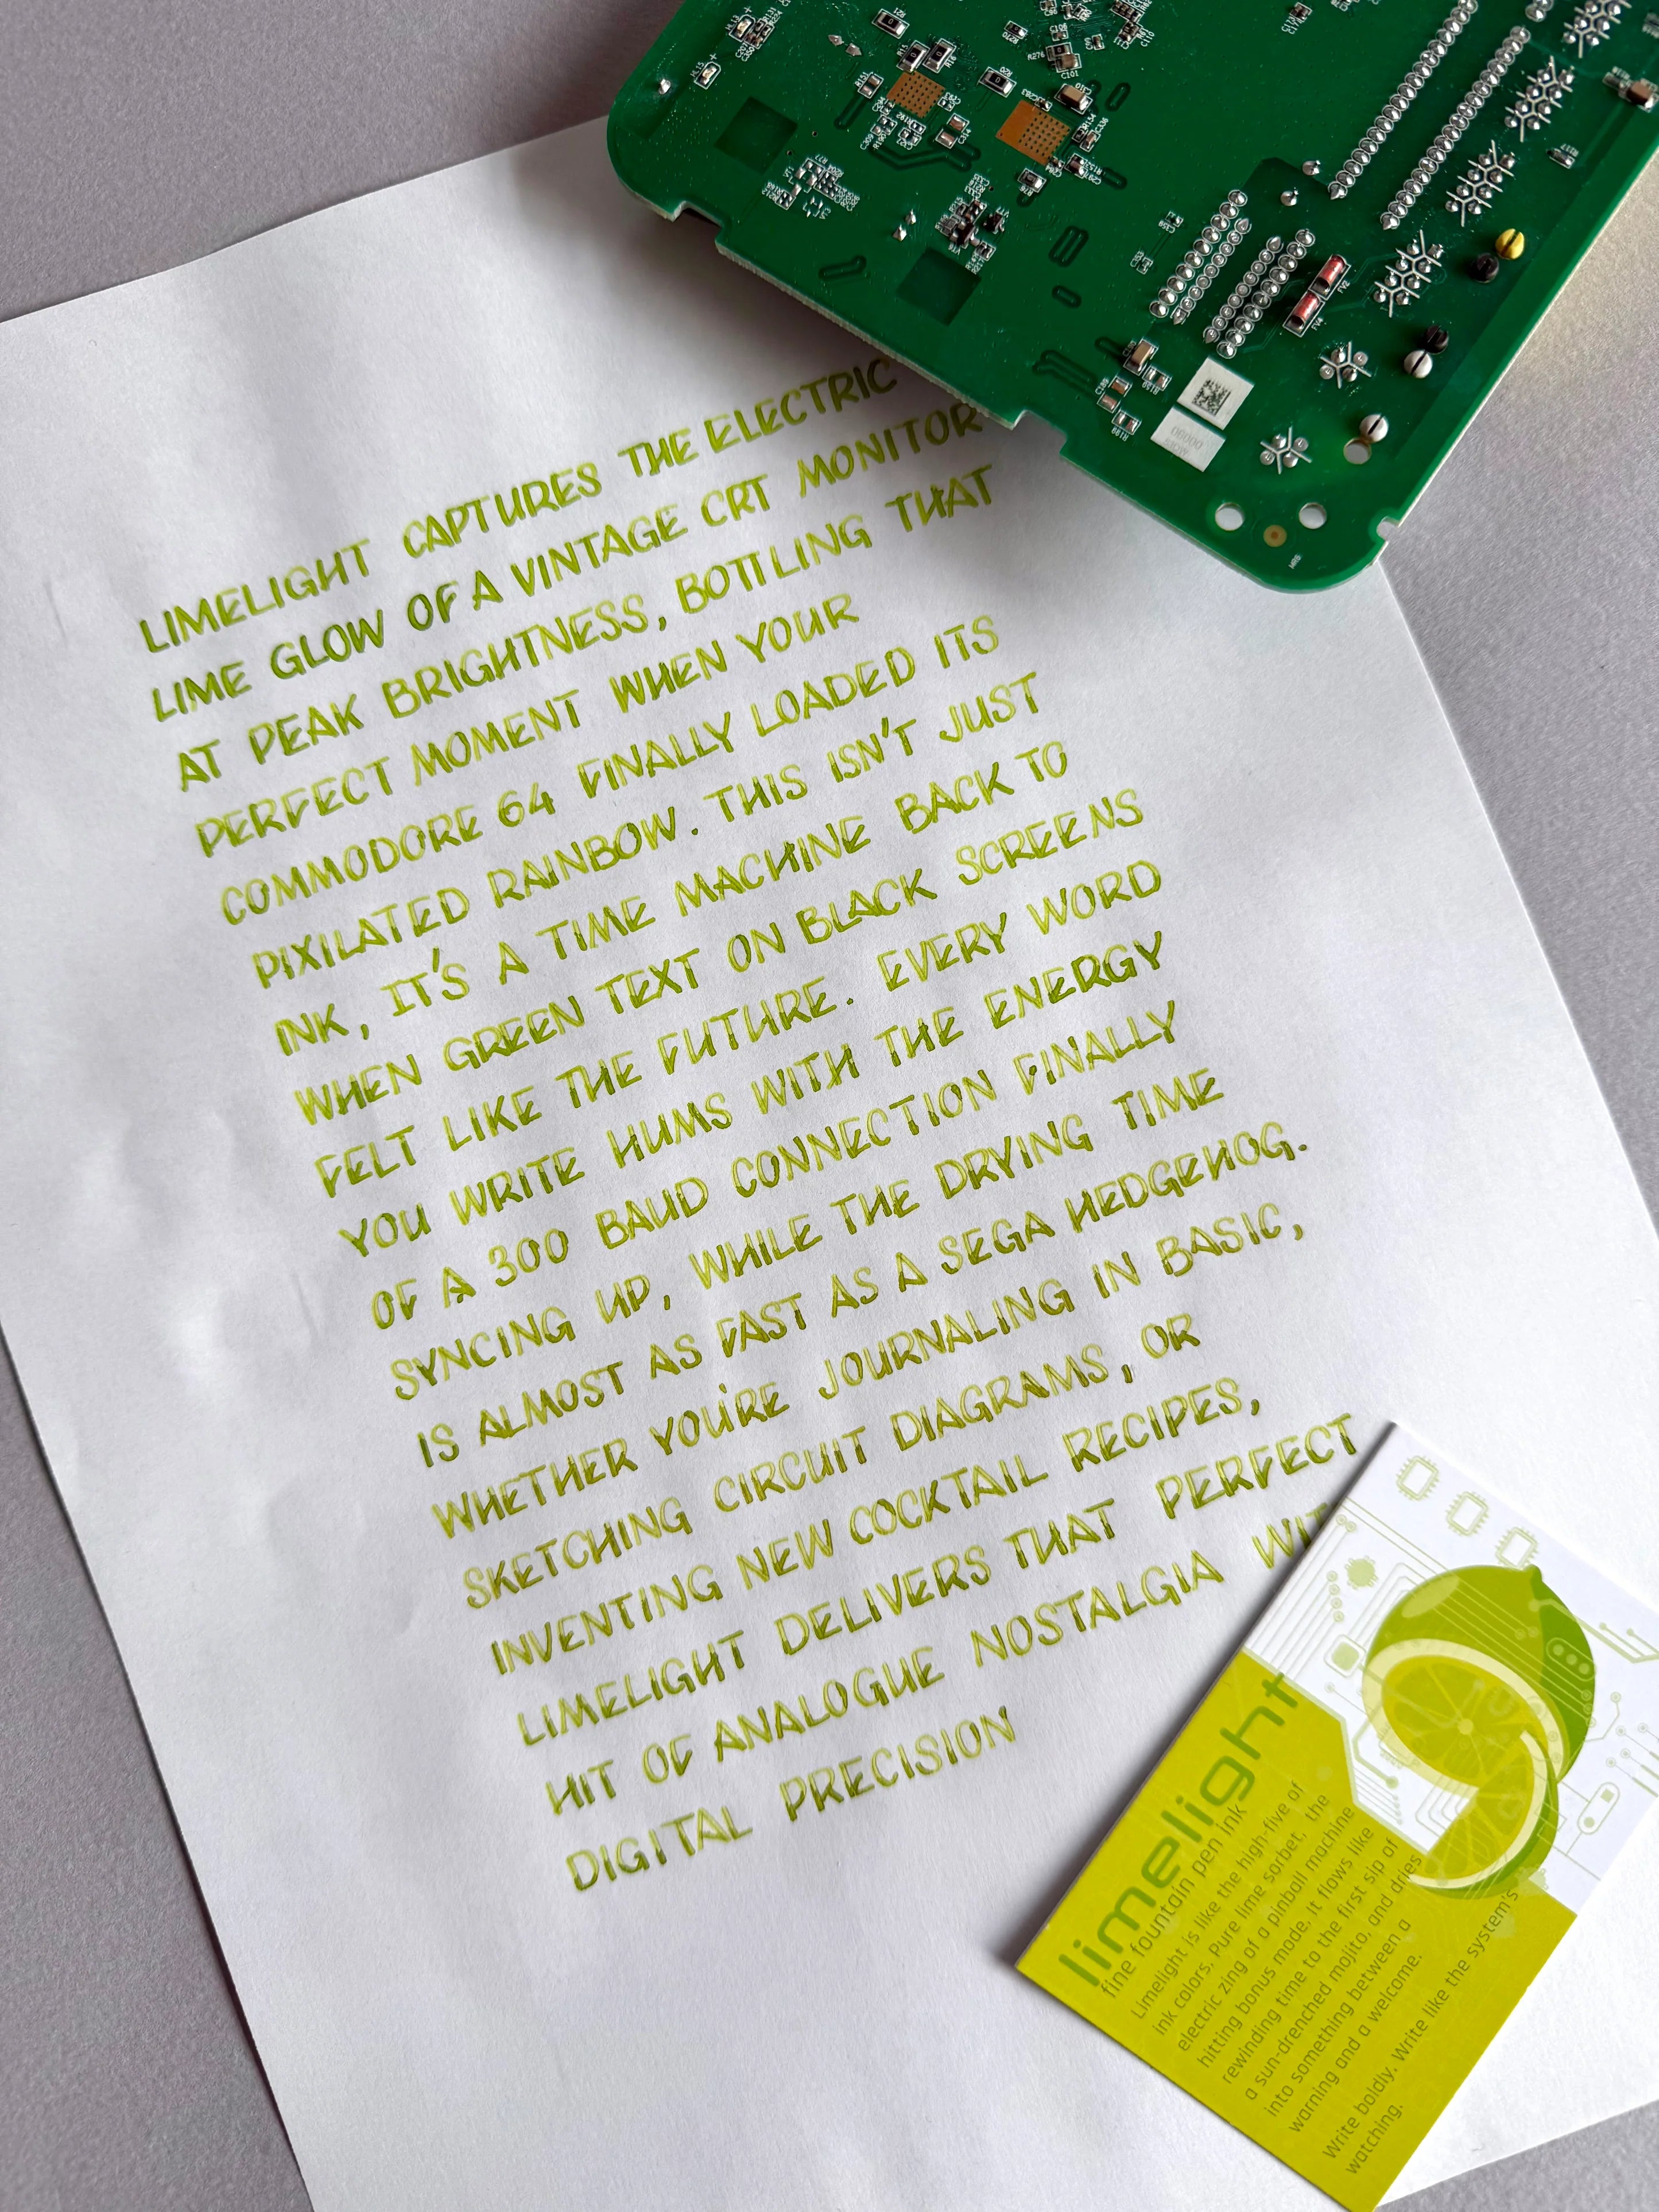 LIMELIGHT CAPTURES THE ELECTRIC
LIME GLOW OF A VINTAGE CRT MONITOR
AT PEAK BRIGHTNESS, BOTTLING THAT
PERFECT MOMENT WHEN YOUR
COMMODORE 64 FINALLY LOADED ITS
PIXILATED RAINBOW. THIS ISN'T JUST
INK, IT'S A TIME MACHINE BACK TO
WHEN GREEN TEXT ON BLACK SCREENS
FELT LIKE THE FUTURE. EVERY WORD
YOU WRITE HUMS WITH THE ENERGY
OF A 300 BAUD CONNECTION FINALLY
SYNCING UP, WHILE THE DRYING TIME
IS ALMOST AS FAST AS A SEGA HEDGEHOG.
WHETHER YOU'RE JOURNALING IN BASIC,
SKETCHING CIRCUIT DIAGRAMS, OR
INVENTING NEW COCKTAIL RECIPES,
LIMELIGHT DELIVERS THAT PERFECT
HIT OF ANALOGUE NOSTALGIA
DIGITAL PRECISION
limelight
fine fountain pen ink
Limelight is like the high-five of
ink colors. Pure lime sorbet, the
electric zing of a pinball machine
hitting bonus mode, it flows like
rewinding time to the first sip of
a sun-drenched mojito, and dries
into something between a
warning and a welcome.
Write boldly. Write like the system's
watching.